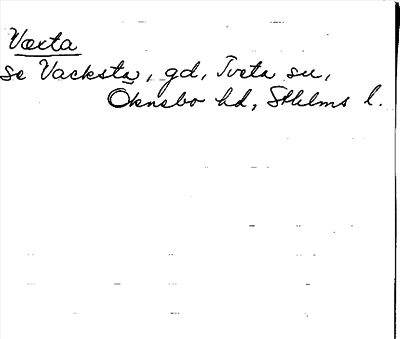 Væta
se Vackstà, gd, Tveta sn,
Öknebo hd, Sthlms l.